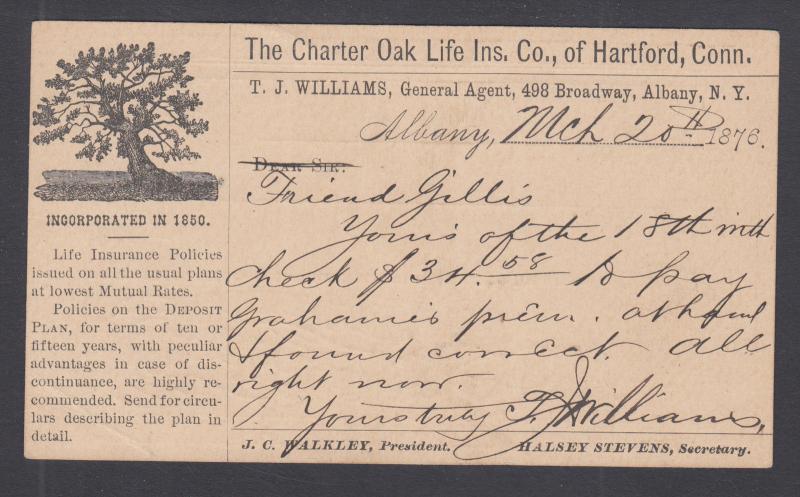 The Charter Oak Life Ins. Co., of Hartford, Conn.
T. J. WILLIAMS, General Agent, 498 Broadway, Albany, N. Y.
Albany, Mch 20th 1876.
DEAR SIR:
Friend Gillis
Yours of the 18th with
check $34.58 to pay
Grahames prem. at hand
& found correct. all
right now.
Yours truly T. J. Williams,
J. C. WALKLEY, President. HALSEY STEVENS, Secretary.
INCORPORATED IN 1850.
Life Insurance Policies
issued on all the usual plans
at lowest Mutual Rates.
Policies on the DEPOSIT
PLAN, for terms of ten or
fifteen years, with peculiar
advantages in case of dis-
continuance, are highly re-
commended. Send for circu-
lars describing the plan in
detail.